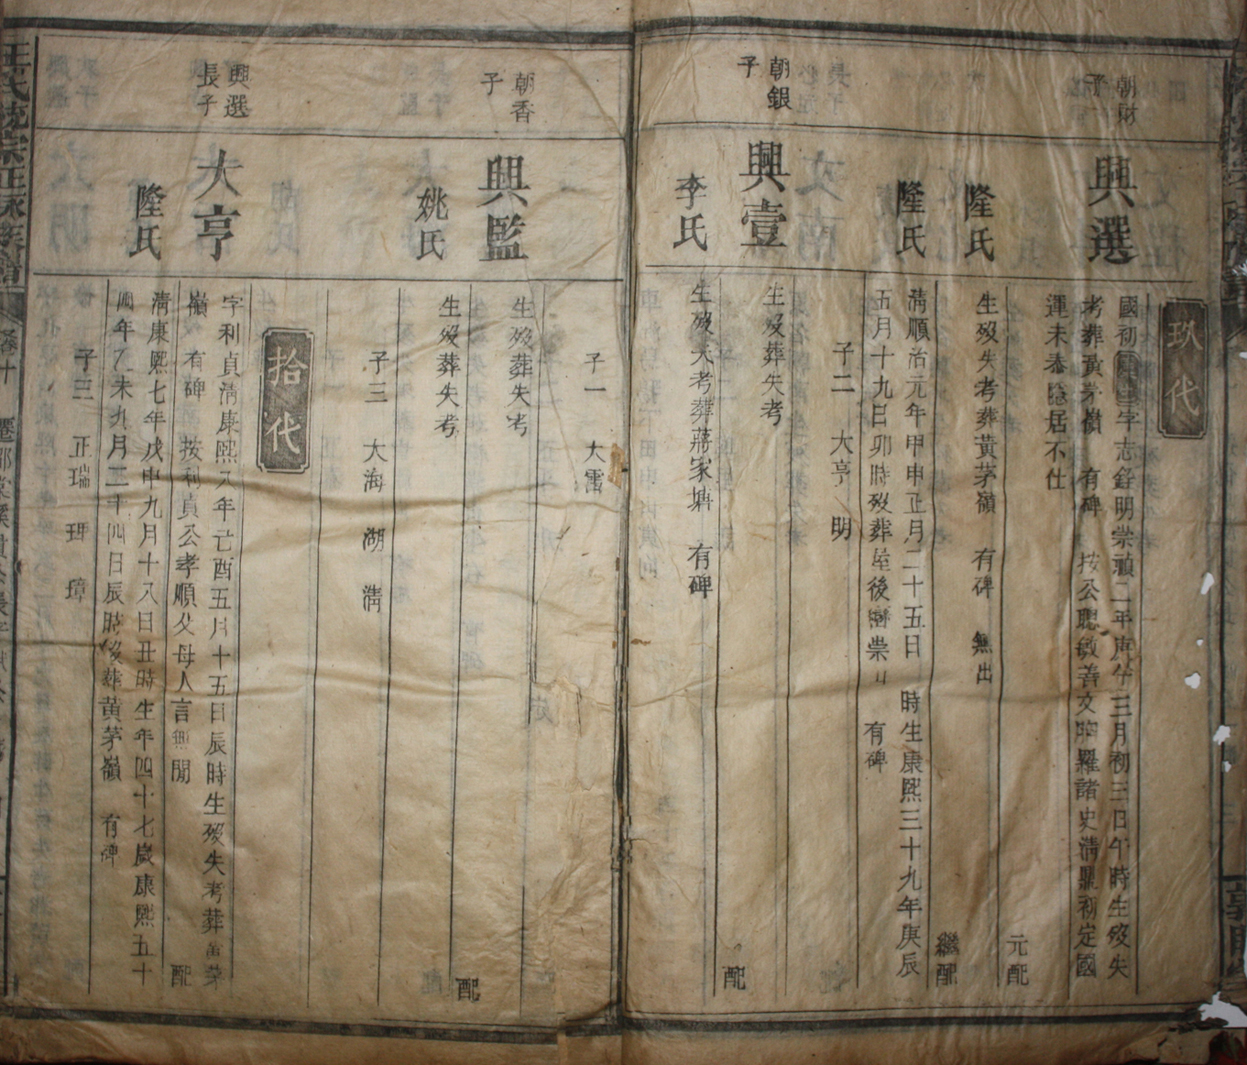 玖代
朝財
子
興選
國初 字志銘明崇禎二年庚午三月初三日午時生歿失
考葬黃茅嶺 有碑 按公聰敏善文胸羅諸史清鼎初定國
運未泰隱居不仕
元配
隆氏
生歿失考葬黃茅嶺 有碑 無出
繼配
隆氏
清順治元年甲申正月二十五日 時生康熙三十九年庚辰
五月十九日卯時歿葬屋後 崇山 有碑
子二 大亨 明
朝銀
子
興壹
生歿葬失考
配
李氏
生歿失考葬蔣家塘 有碑
子一 大雷
朝香
子
興監
生歿葬失考
配
姚氏
生歿葬失考
子三 大海 湖 清
拾代
興選
長子
大亨
字利貞清康熙八年己酉五月十五日辰時生歿失考葬黃茅
嶺 有碑 按利貞公孝順父母人言無閒
配
隆氏
清康熙七年戊申九月十八日丑時生年四十七歲康熙五十
四年乙未九月二十四日辰時歿葬黃茅嶺 有碑
子三 正瑞 珥 璋